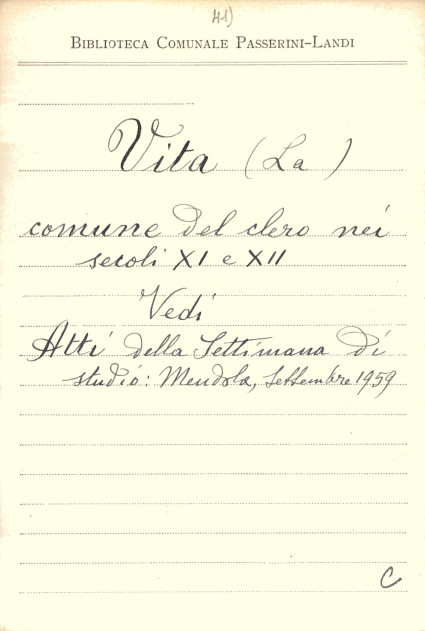 41)
BIBLIOTECA COMUNALE PASSERINI-LANDI
Vita (La)
comune del clero nei
secoli XI e XII
Vedi
Atti della Settimana di
studio: Mendola, Settembre 1959
C